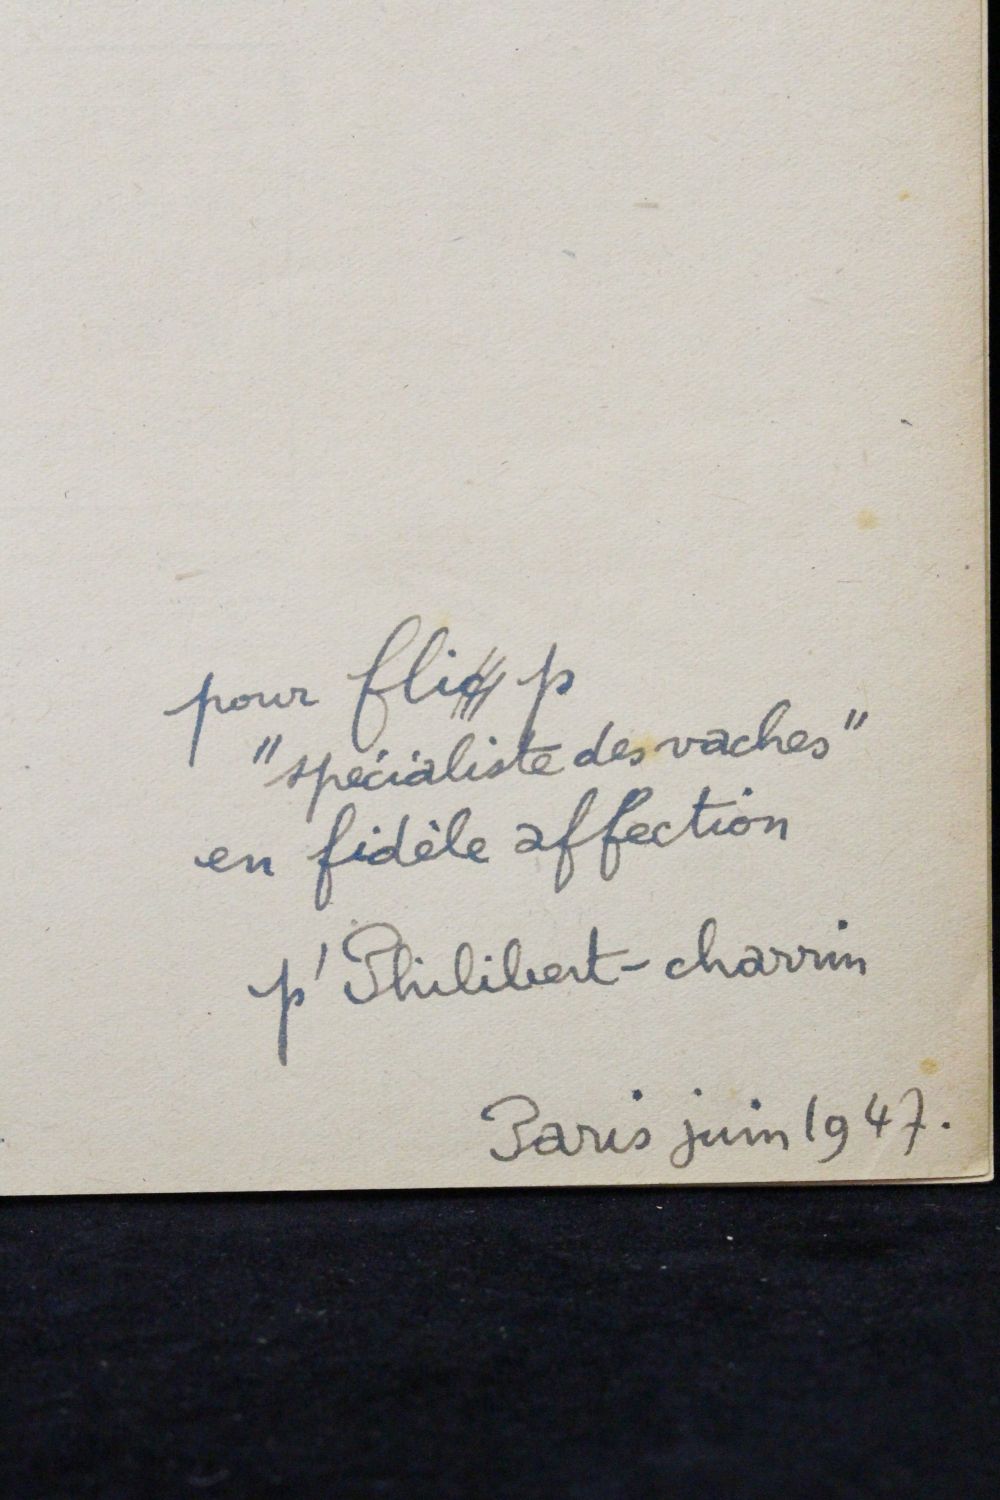 pour fli p
"spécialiste des vaches"
en fidèle affection
p' Philibert-charrin
Paris juin 1947.